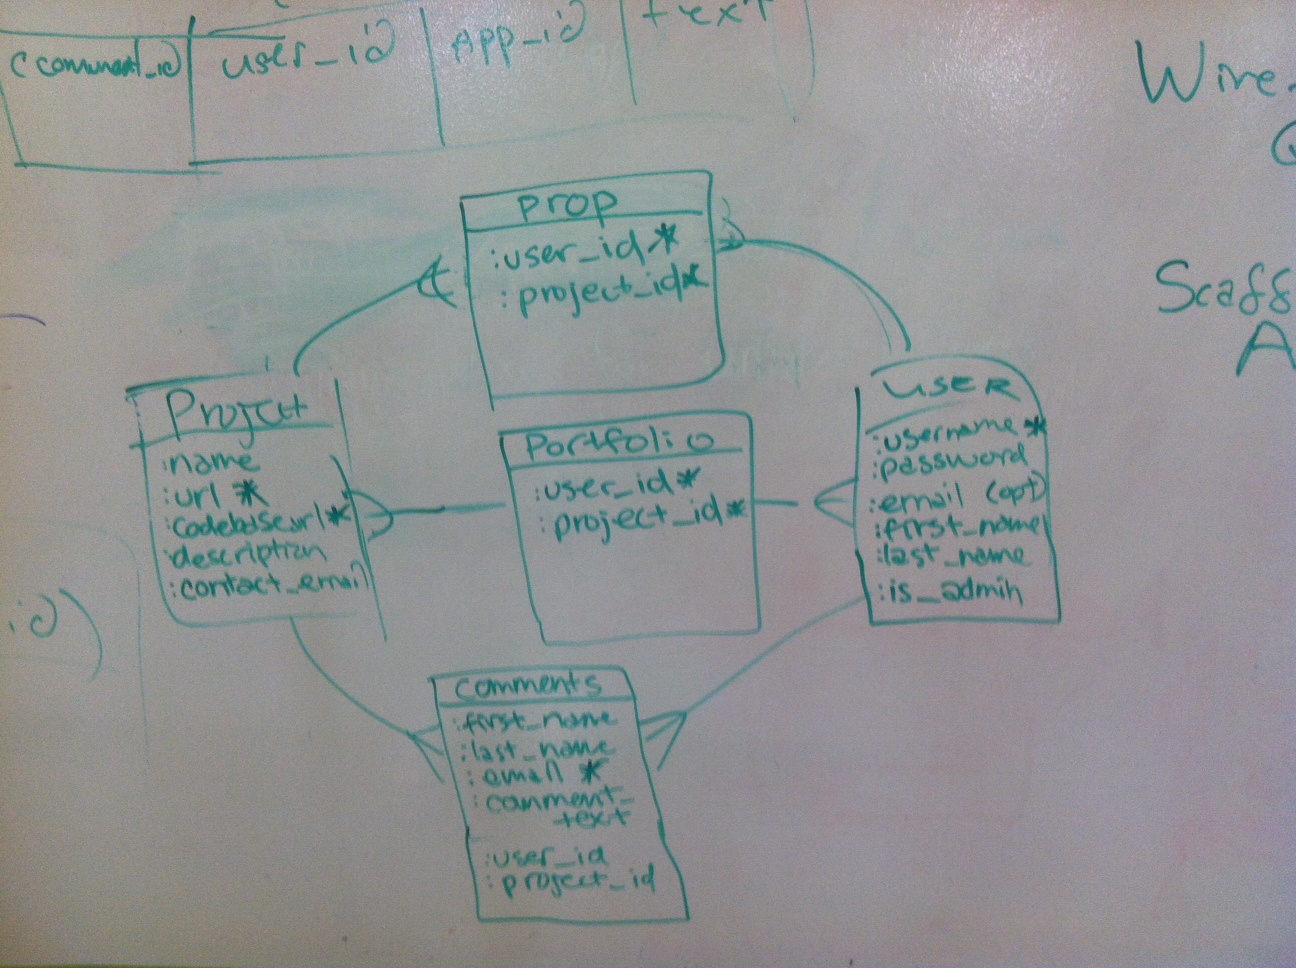 comment_id user_id App_id text
Wire
Scaff
A
prop
:user_id *
:project_id *
Project
:name
:url *
:codebase_url *
:description
:contact_email
Portfolio
:user_id *
:project_id *
USER
:username *
:password
:email (opt)
:first_name
:last_name
:is_admin
id)
comments
:first_name
:last_name
:email *
:comment_
text
:user_id
:project_id